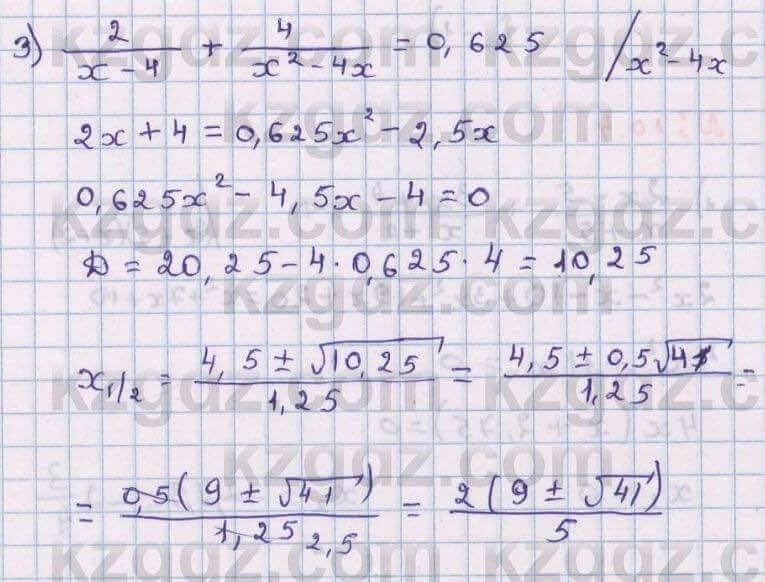 3) 2/(x - 4) + 4/(x² - 4x) = 0,625 /x² - 4x
2x + 4 = 0,625x² - 2,5x
0,625x² - 4,5x - 4 = 0
D = 20,25 - 4 · 0,625 · 4 = 10,25
x₁/₂ = (4,5 ± √10,25)/1,25 = (4,5 ± 0,5√41)/1,25 =
= 0,5(9 ± √41)/1,25 2,5 = 2(9 ± √41)/5
kzgdz.com